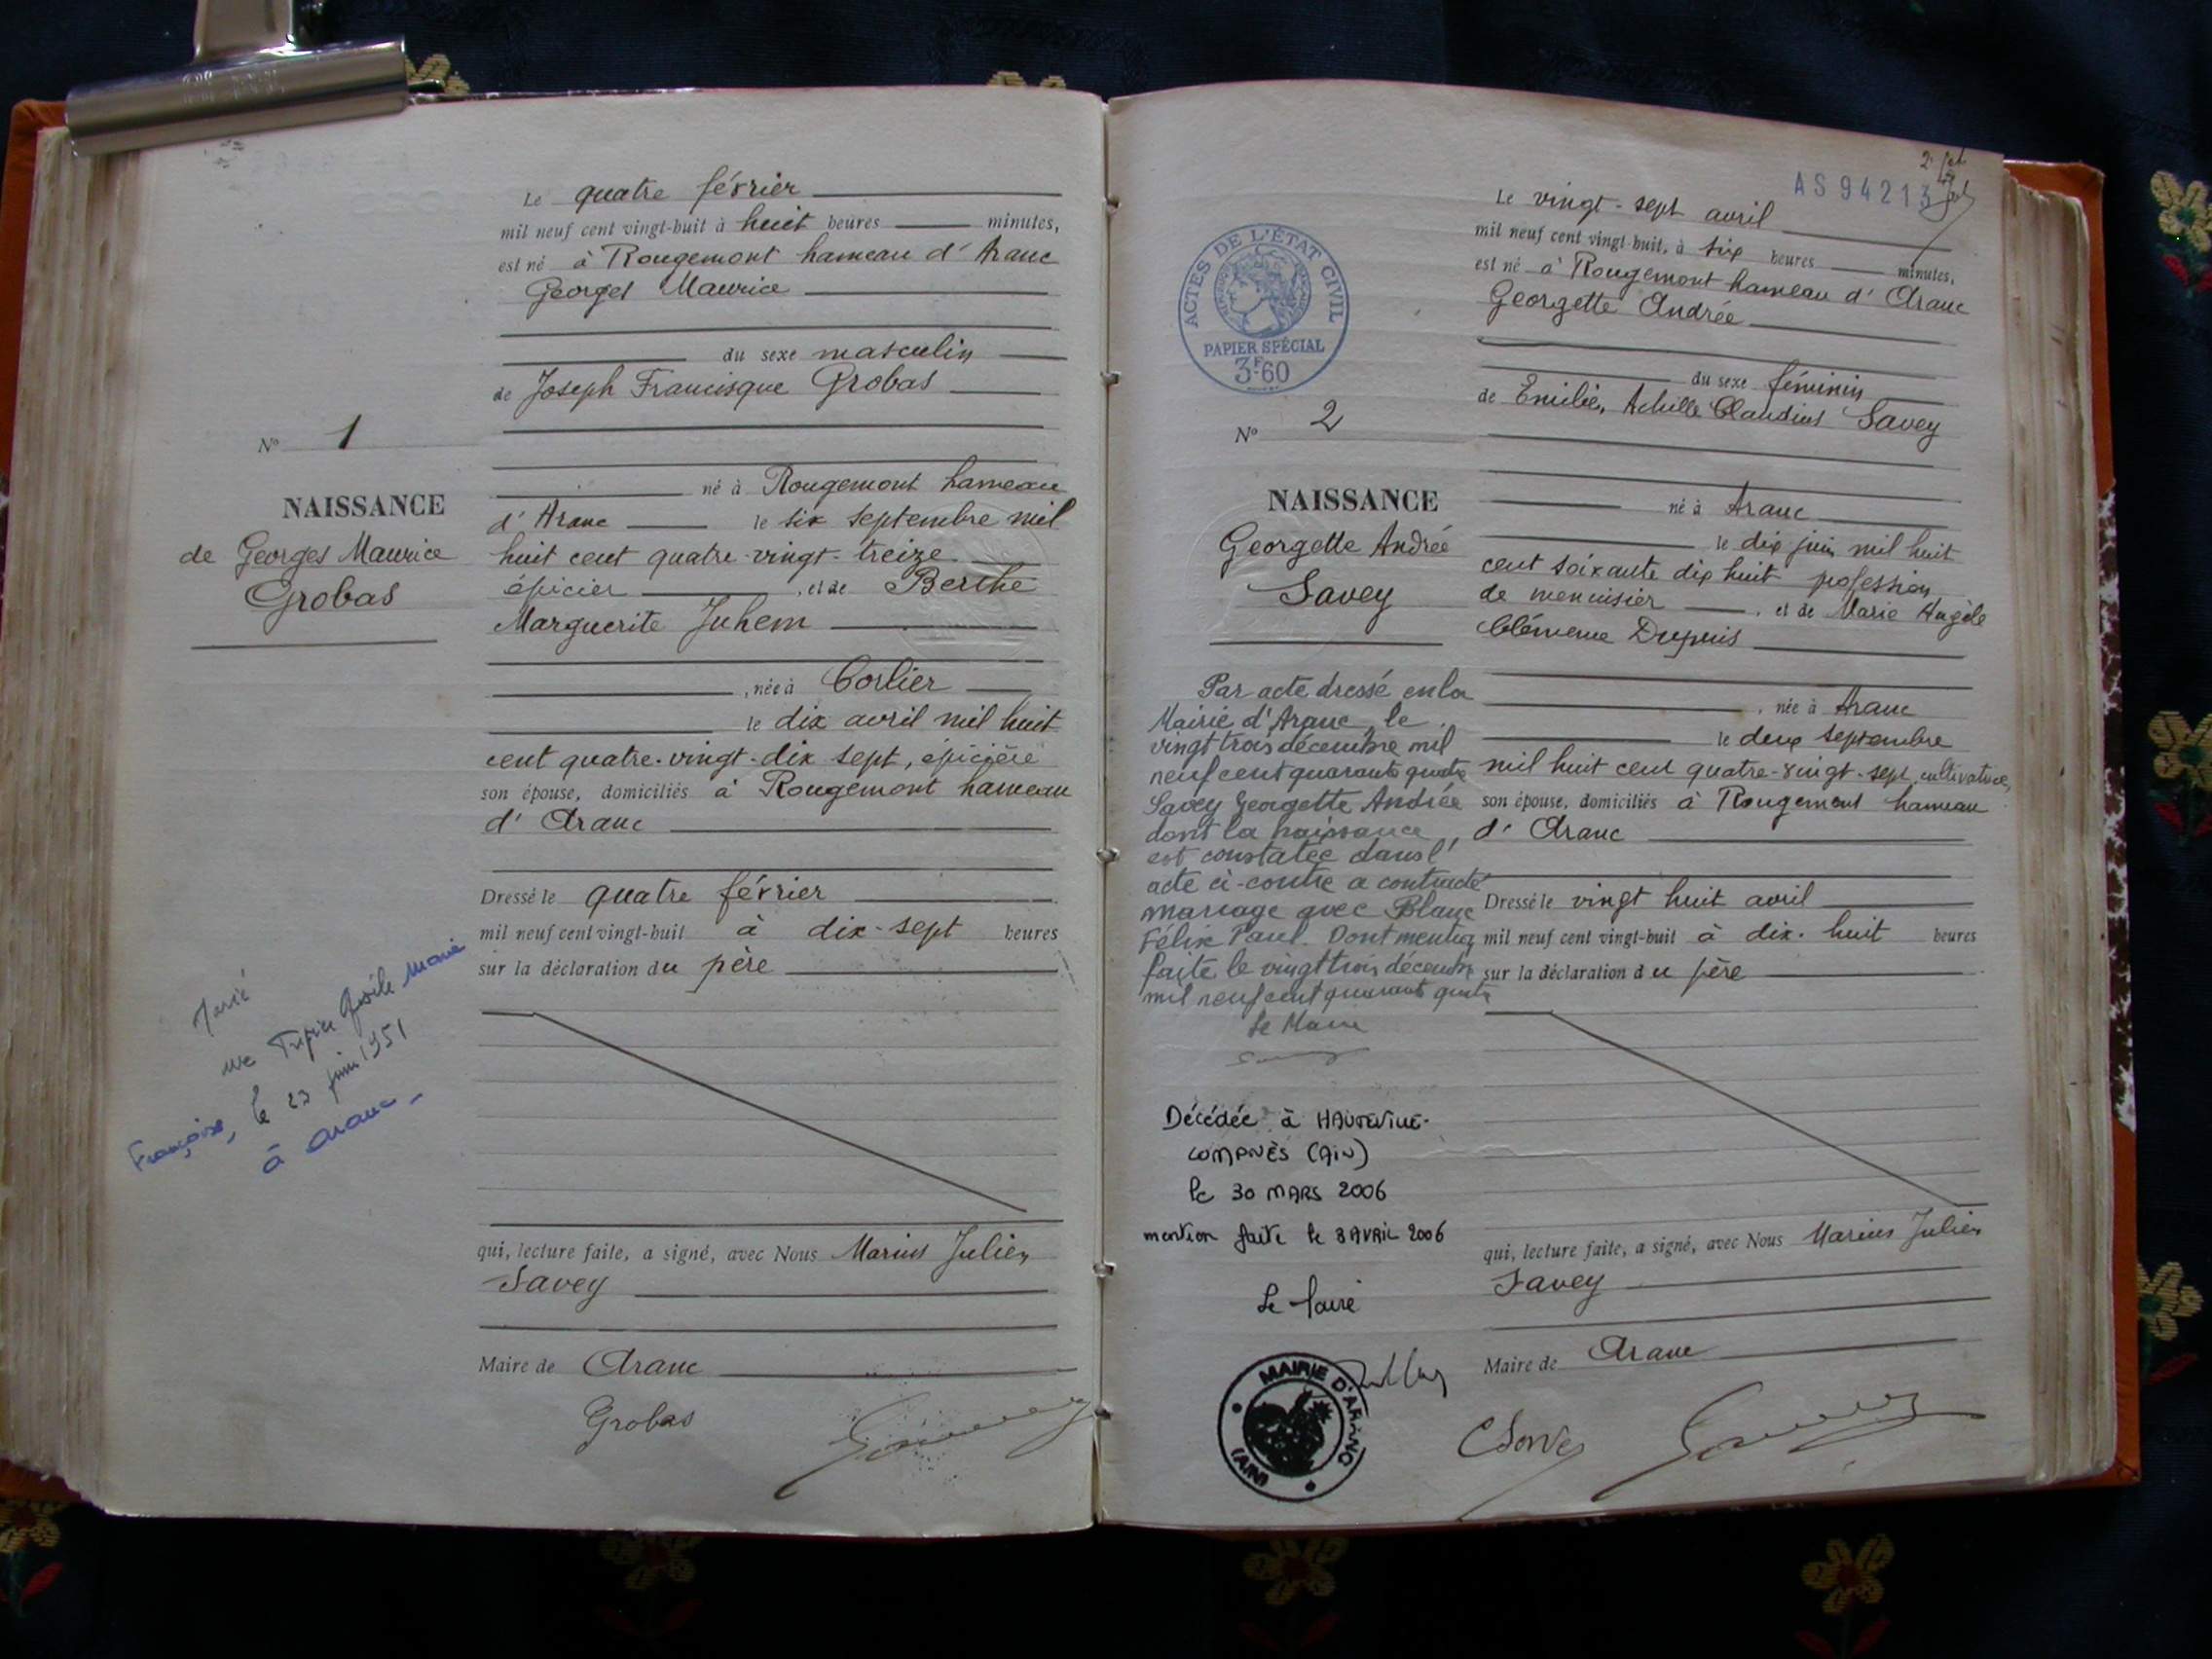 Le quatre février
mil neuf cent vingt-huit à huit heures minutes,
est né à Rougemont hameau d'Aranc
Georges Maurice
du sexe masculin
de Joseph Francisque Grobas
N° 1
né à Rougemont hameau
NAISSANCE
d'Aranc le six septembre mil
de Georges Maurice
huit cent quatre-vingt-treize
Grobas
épicier, et de Berthe
Marguerite Juhem
, née à Corlier
le dix avril mil huit
cent quatre-vingt-dix sept, épicière
son épouse, domiciliés à Rougemont hameau
d'Aranc
Dressé le quatre février
mil neuf cent vingt-huit à dix-sept heures
sur la déclaration du père
Marié
Marie
Françoise, le 23 juin 1951
à Aranc
qui, lecture faite, a signé, avec Nous Marius Julien
Savey
Maire de Aranc
Grobas
AS 94213
Le vingt-sept avril
mil neuf cent vingt-huit, à six heures minutes,
est né à Rougemont hameau d'Aranc
Georgette Andrée
ACTES DE L'ÉTAT CIVIL
PAPIER SPÉCIAL
3F60
du sexe féminin
de Emilien Achille Claudius Savey
N° 2
né à Aranc
NAISSANCE
Georgette Andrée
Savey
le dix juin mil huit
cent soixante dix huit profession
de menuisier, et de Marie Angèle
Clémence Dupuis
, née à Aranc
le deux septembre
mil huit cent quatre-vingt-sept, cultivatrice,
son épouse, domiciliés à Rougemont hameau
d'Aranc
Dressé le vingt huit avril
mil neuf cent vingt-huit à dix-huit heures
sur la déclaration du père
Par acte dressé en la
Mairie d'Aranc, le
vingt trois décembre mil
neuf cent quarante quatre
Savey Georgette Andrée
dont la naissance
est constatée dans l'
acte ci-contre a contracté
mariage avec Blanc
Félix Paul. Dont mention
faite le vingt trois décembre
mil neuf cent quarante quatre
Le Maire
Décédée à HAUTEVILLE-
LOMPNÈS (AIN)
le 30 MARS 2006
mention faite le 3 AVRIL 2006
Le Maire
MAIRIE D'ARANC
(AIN)
qui, lecture faite, a signé, avec Nous Marius Julien
Savey
Maire de Aranc